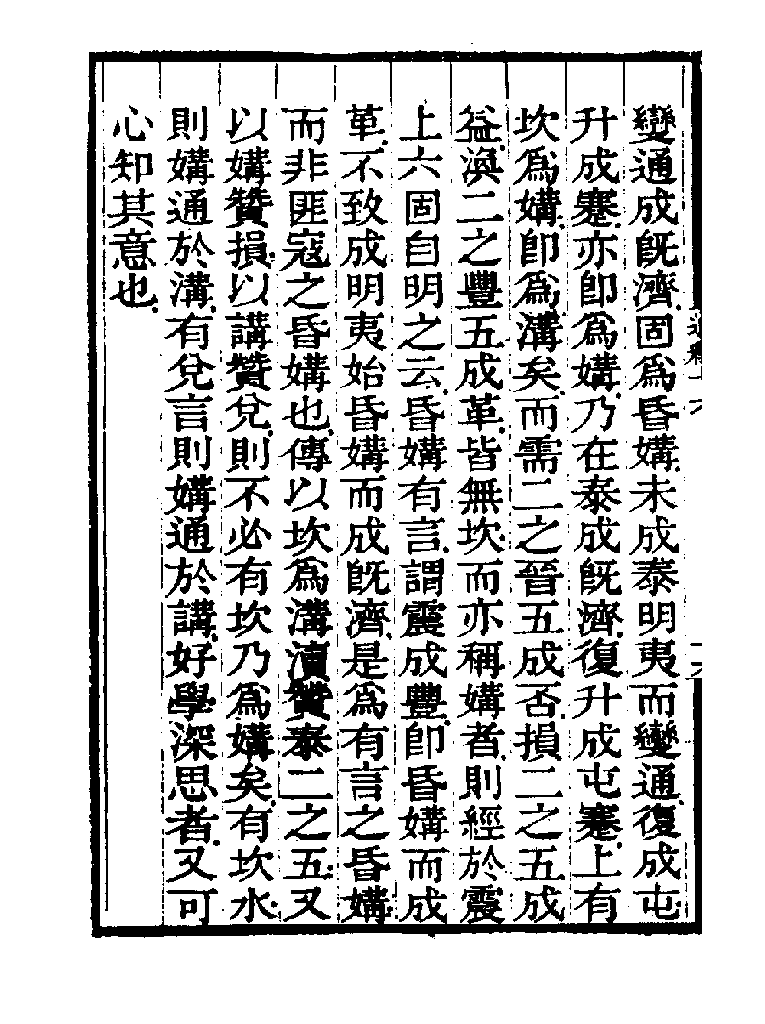 變通成旣濟固爲昏媾未成泰明夷而變通復成屯
升成蹇亦卽爲媾乃在泰成旣濟復升成屯蹇上有
坎爲媾卽爲溝矣而需二之晉五成否損二之五成
益渙二之豐五成革皆無坎而亦稱媾者則經於震
上六固自明之云昏媾有言謂震成豐卽昏媾而成
革不致成明夷始昏媾而成旣濟是爲有言之昏媾
而非匪寇之昏媾也傳以坎爲溝瀆贊泰二之五又
以媾贊損以講贊兌則不必有坎乃爲媾矣有坎水
則媾通於溝有兌言則媾通於講好學深思者又可
心知其意也